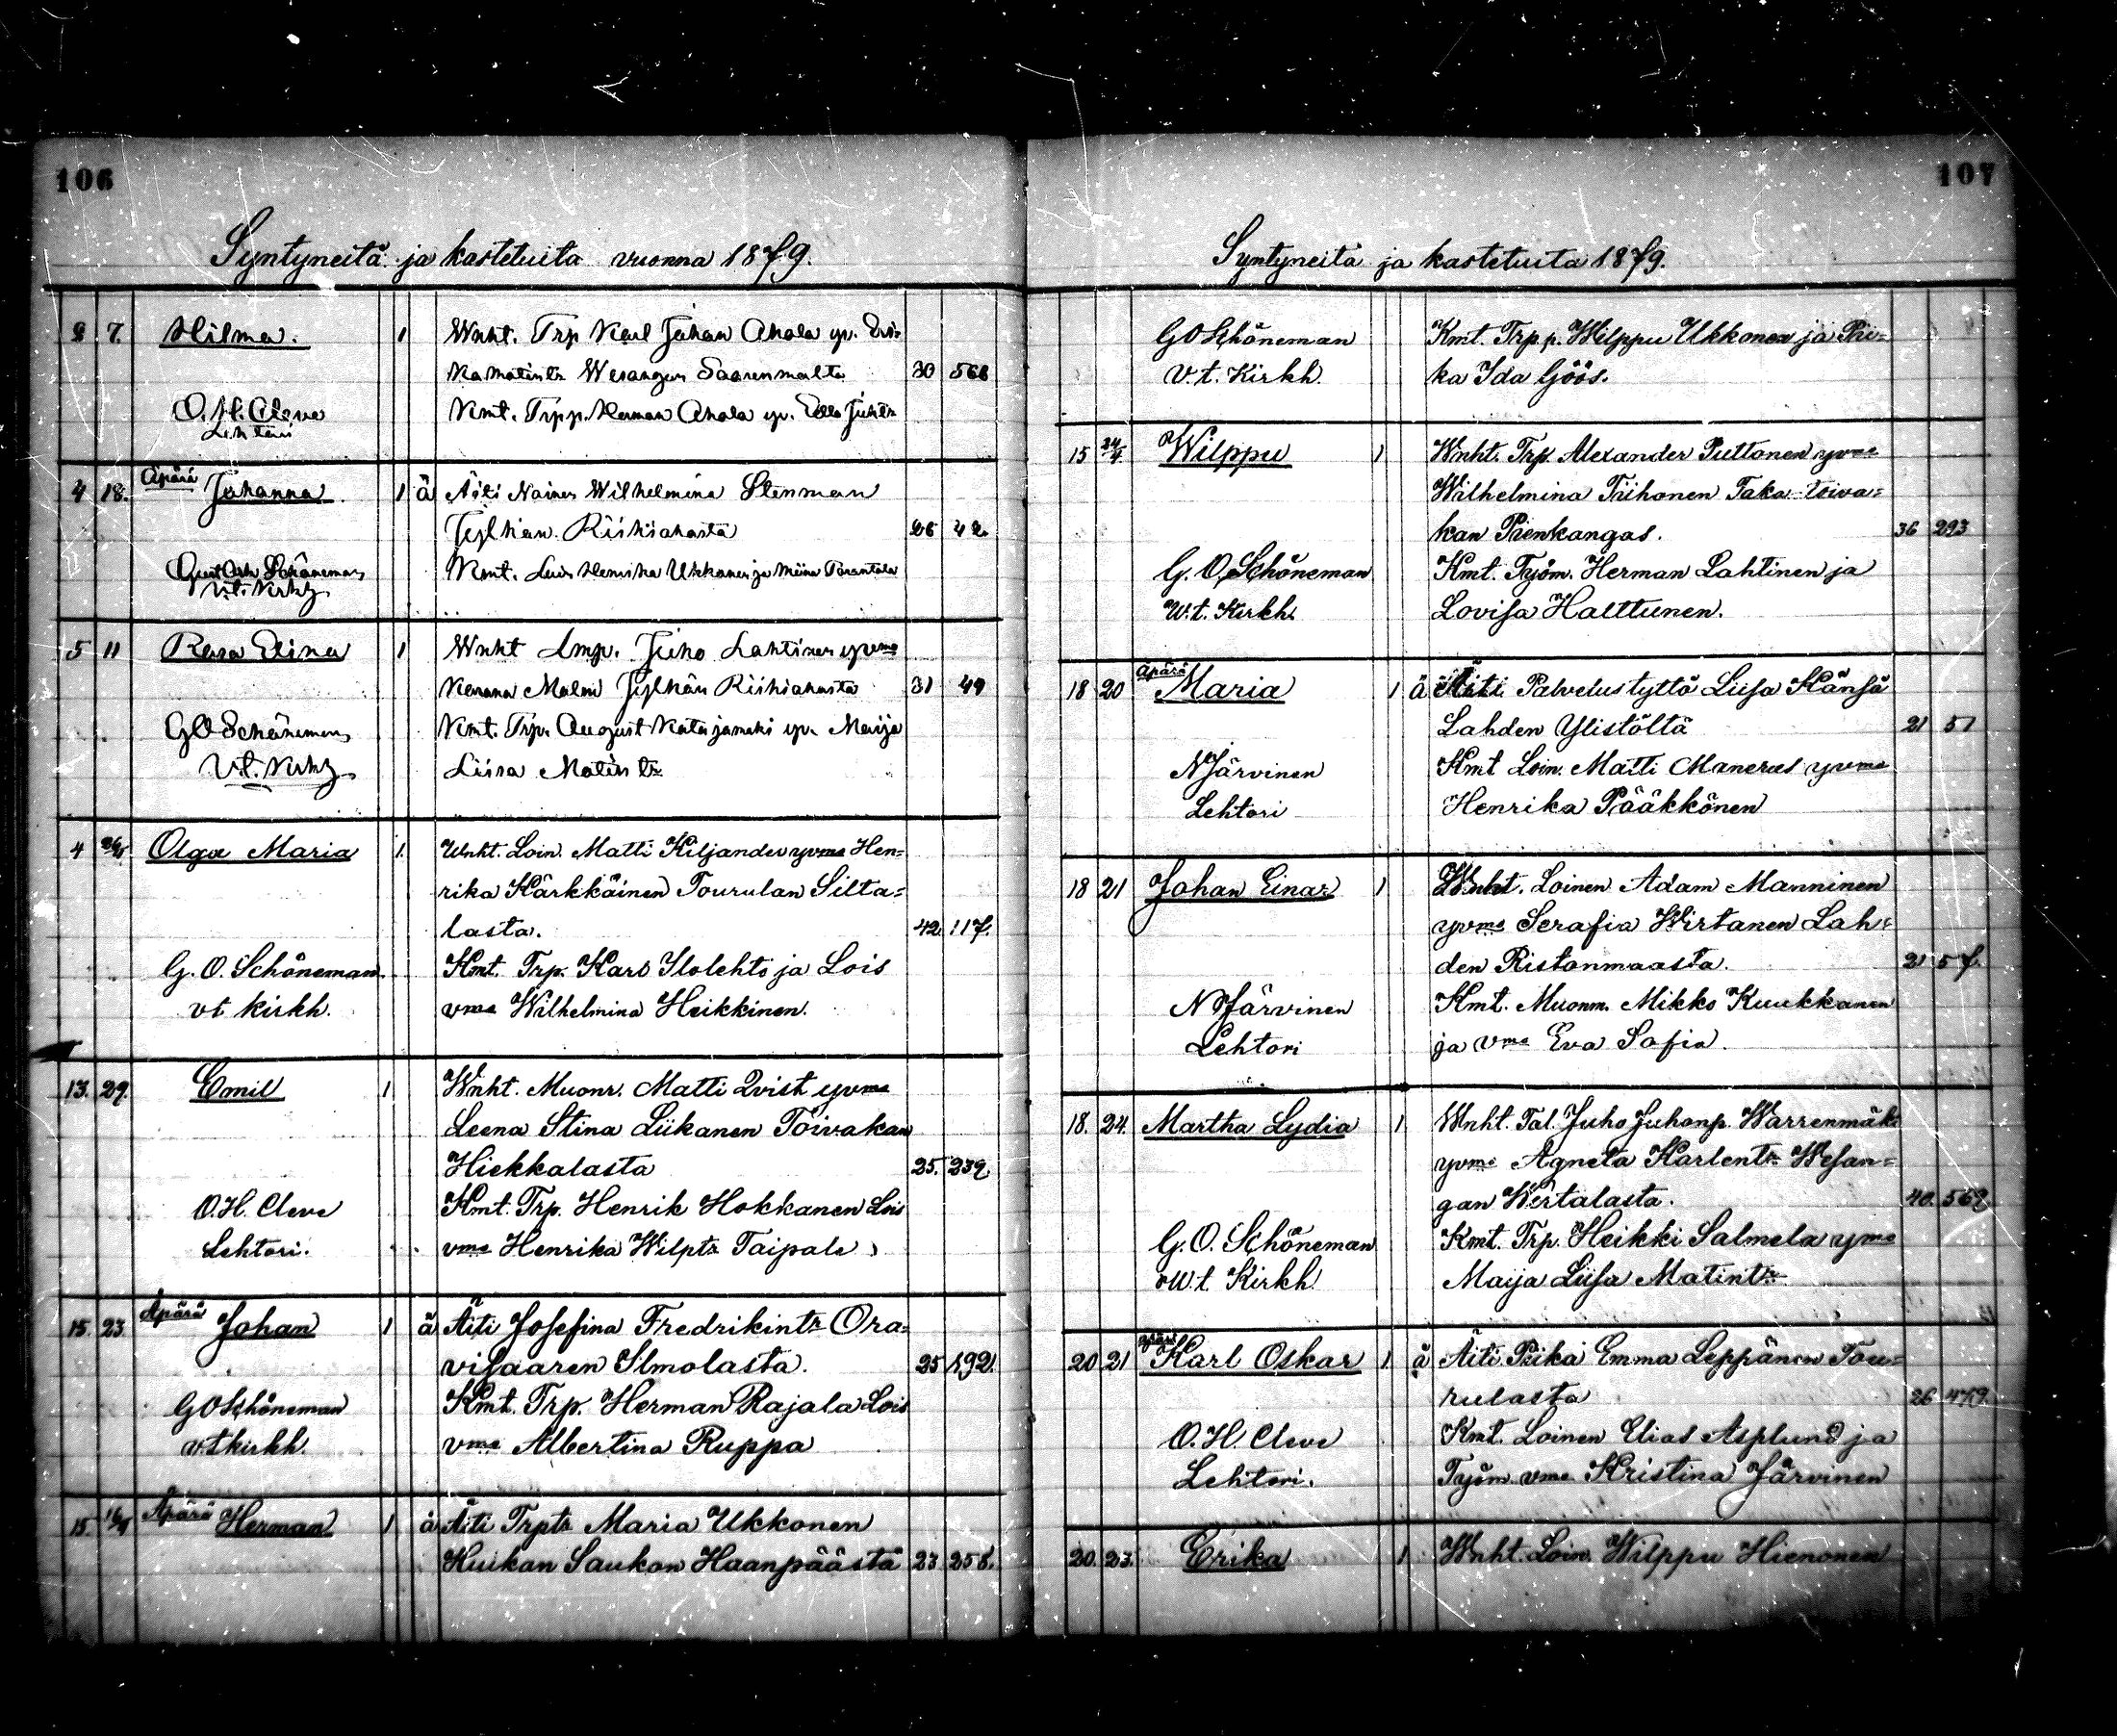 106
Syntyneitä ja kastetuita vuonna 1879.
2 7. Hilma. 1 Wnht. Trp Karl Johan Ahola yv. Eri=
ka Matintr Wesangan Saarenmalta 30 568
O. H. Cleve Kmt. Trpp. Herman Ahola yv. Ella Juhtr
Lehtori
4 18. Apärä Johanna. 1 ä Äiti Nainen Wilhelmina Stenman
Jylhän Riihiahosta 26 42
Schöneman Kmt. Lois Henrika Ukkonen ja Miina
v.t. Kirkh.
5 11 Elina 1 Wnht Lmp. Juho Lahtinen yvma
Malin Jylhän Riihiahosta 31 49
G O Schöneman Kmt. Trp. August Katajamäki yv. Maija
v.t. Kirkh. Liisa Matintr
4 26/4 Olga Maria 1. Wnht. Loin. Matti Kiljander yvma Hen=
rika Kärkkäinen Tourulan Silta=
lasta. 42 117.
G. O. Schöneman Kmt. Trp. Karl Ilolehto ja Lois
vt kirkh. vma Wilhelmina Heikkinen.
13. 29. Emil 1 Wnht. Muonr. Matti Qvist yvma
Leena Stina Liikanen Toivakan
Hiekkalasta 25. 239.
O. H. Cleve Kmt. Trp. Henrik Hokkanen Lois
Lehtori. vma Henrika Wilptr Taipale
15. 23. Apärä Johan 1 ä Äiti Josefina Fredrikintr Ora=
visaaren Ilmolasta. 25 192.
G O Schöneman Kmt. Trp. Herman Rajala Lois
v.t kirkh. vma Albertina Ruppa
15. 16/4 Apärä Herman 1 ä Äiti Trptr Maria Ukkonen
Kuikan Saukon Haanpäästä 23. 258.
107
Syntyneitä ja kastetuita 1879.
G O Schöneman Kmt. Trp p. Wilppu Ukkonen ja Pii=
V. t. Kirkh. ka Ida Göös.
15 24/4. Wilppu 1 Wnht. Trp. Alexander Puttonen yvma
Wilhelmina Tiihonen Taka-toiva=
kan Pienkangas. 36 293
G. O. Schöneman Kmt. Työm. Herman Lahtinen ja
W. t. Kirkh. Lovisa Halttunen.
18 20 Apärä Maria 1 ä Äiti Palvelustyttö Liisa Känsä
Lahden Ylistöltä 21 51
N Järvinen Kmt Loin. Matti Manerus yvma
Lehtori Henrika Pääkkönen
18 21 Johan Einar 1 Wnht. Loinen Adam Manninen
yvma Serafia Wirtanen Lah=
den Ristonmaasta. 21 57.
N Järvinen Kmt. Muonm. Mikko Kuukkanen
Lehtori ja vma Eva Sofia.
18. 24. Martha Lydia 1. Wnht. Tal. Juho Juhonp. Warrenmäk
yvma Agneta Karlentr Wesan=
gan Wertalasta. 40. 562.
G. O. Schöneman Kmt. Trp. Heikki Salmela yvma
W. t. Kirkh. Maija Liisa Matintr
20. 21 Karl Oskar 1 ä Äiti Piika Emma Leppänen Tou=
rulasta 26 479.
O. H. Cleve Kmt. Loinen Elias Asplund ja
Lehtori. Työm. vma Kristina Järvinen
20. 23. Erika 1 Wnht. Loin. Wilppu Hienonen